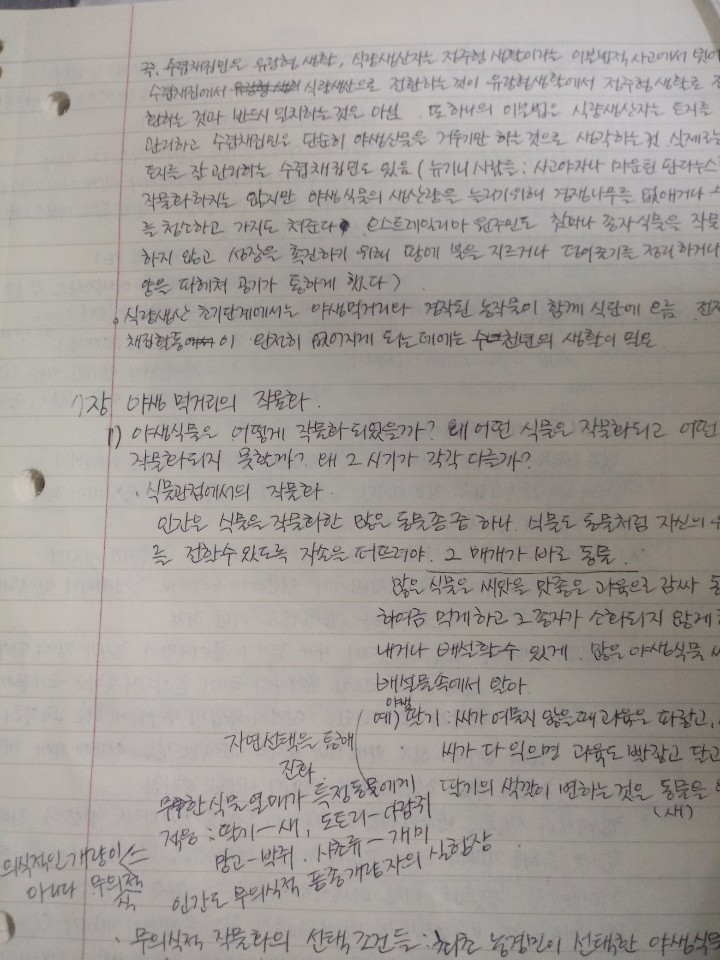 즉, 수렵채집민은 유랑형 생활, 식량생산자는 정주형 생활이라는 이분법적 사고에서
수렵채집에서 식량생산으로 전환하는것이 유랑형생활에서 정주형 생활로
환하는 것과 반드시 일치하는것은 아님. 또 하나의 이분법은 식량생산자는 토지를
관리하고 수렵채집민은 단순히 야생산물을 거두기만 하는것으로 생각하는것. 실제로는
토지를 잘 관리하는 수렵채집민도 있음 (뉴기니 사람들: 사고야자나 마운틴 판다누스
작물화하지는 않지만 야생식물의 생산량을 늘리기위해 경쟁나무를 없애거나
를 청소하고 가지도 쳐준다. 오스트레일리아 원주민도 참마나 종자식물을 작물
하지 않고 성장을 촉진하기 위해 땅에 불을 지르거나 덩어줄기를 정리하거나
땅을 파헤쳐 공기가 통하게 했다)
◦ 식량생산 초기단계에서는 야생먹거리와 경작된 농작물이 함께 식단에 오름.
채집활동이 완전히 없어지게 되는데에는 수천년의 생활이 필요
7장 야생 먹거리의 작물화.
1) 야생식물은 어떻게 작물화 되었을까? 왜 어떤 식물은 작물화되고 어떤
작물화되지 못한가? 왜 그 시기가 각각 다를까?
· 식물관점에서의 작물화.
인간은 식물을 작물화한 많은 동물종 중 하나. 식물도 동물처럼 자신의
를 전할수 있도록 자손을 퍼뜨려야. 그 매개가 바로 동물.
많은 식물은 씨앗을 맛좋은 과육으로 감싸
하여금 먹게하고 그 종자가 소화되지 않게
내거나 배설할수 있게. 많은 야생식물
배설물속에서 발아.
예) 야생 딸기: 씨가 여물지 않을때 과육은 파랗고,
씨가 다 익으면 과육도 빨갛고 달고
딸기의 색깔이 변하는것은 동물을
(새)
자연선택을 통해
진화
무수한 식물 열매가 특정동물에게
적응: 딸기-새, 도토리-다람쥐
망고-박쥐. 사초류-개미
인간도 무의식적 품종개량자의 실험장
의식적인 개량이
아니다 무의식적
· 무의식적 작물화의 선택조건들: 최초 농경민이 선택한 야생식물